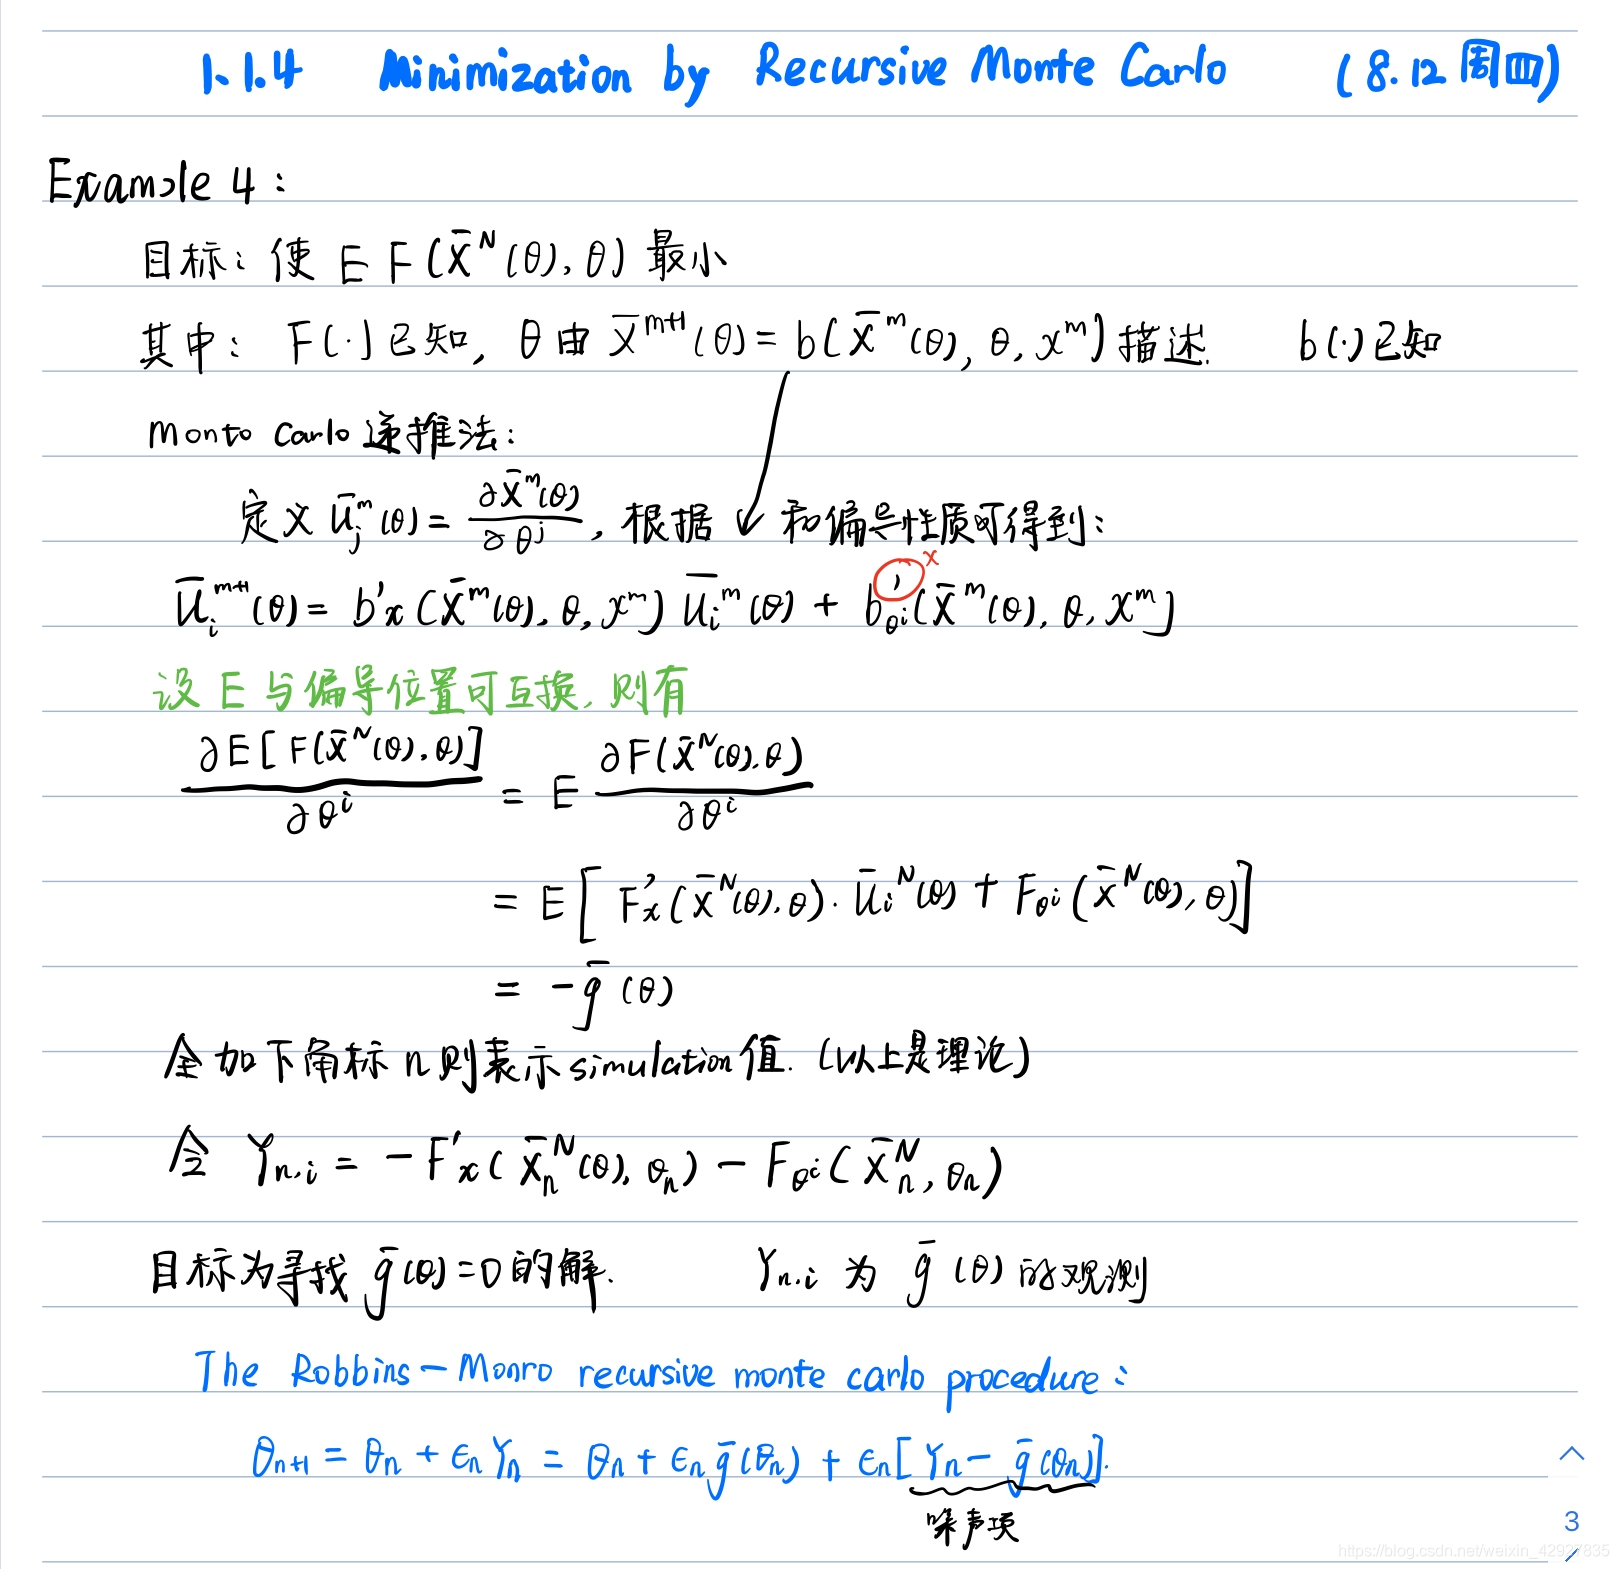 1.1.4 Minimization by Recursive Monte Carlo (8.12周四)
Example 4：
目标：使 E F(X̄^N(θ), θ) 最小
其中： F(·)已知, θ由 X̄^{m+1}(θ) = b(X̄^m(θ), θ, x^m)描述. b(·)已知
Monto Carlo 递推法：
定义 Ū_j^m(θ) = ∂X̄^m(θ)/∂θ^j , 根据 ↙ 和偏导性质可得到：
Ū_i^{m+1}(θ) = b'_x(X̄^m(θ), θ, x^m) Ū_i^m(θ) + b'_{θ^i}(X̄^m(θ), θ, x^m) x
设 E 与偏导位置可互换, 则有
∂E[F(X̄^N(θ), θ)]/∂θ^i = E ∂F(X̄^N(θ), θ)/∂θ^i
= E[F'_x(X̄^N(θ), θ)·Ū_i^N(θ) + F_{θ^i}(X̄^N(θ), θ)]
= -ḡ(θ)
全加下角标 n 则表示 simulation 值. (以上是理论)
令 Y_{n,i} = -F'_x(X̄_n^N(θ), θ_n) - F_{θ^i}(X̄_n^N, θ_n)
目标为寻找 ḡ(θ)=0 的解. Y_{n,i} 为 ḡ(θ) 的观测
The Robbins-Monro recursive monte carlo procedure：
θ_{n+1} = θ_n + ϵ_n Y_n = θ_n + ϵ_n ḡ(θ_n) + ϵ_n[Y_n - ḡ(θ_n)].
噪声项
3
https://blog.csdn.net/weixin_42927835